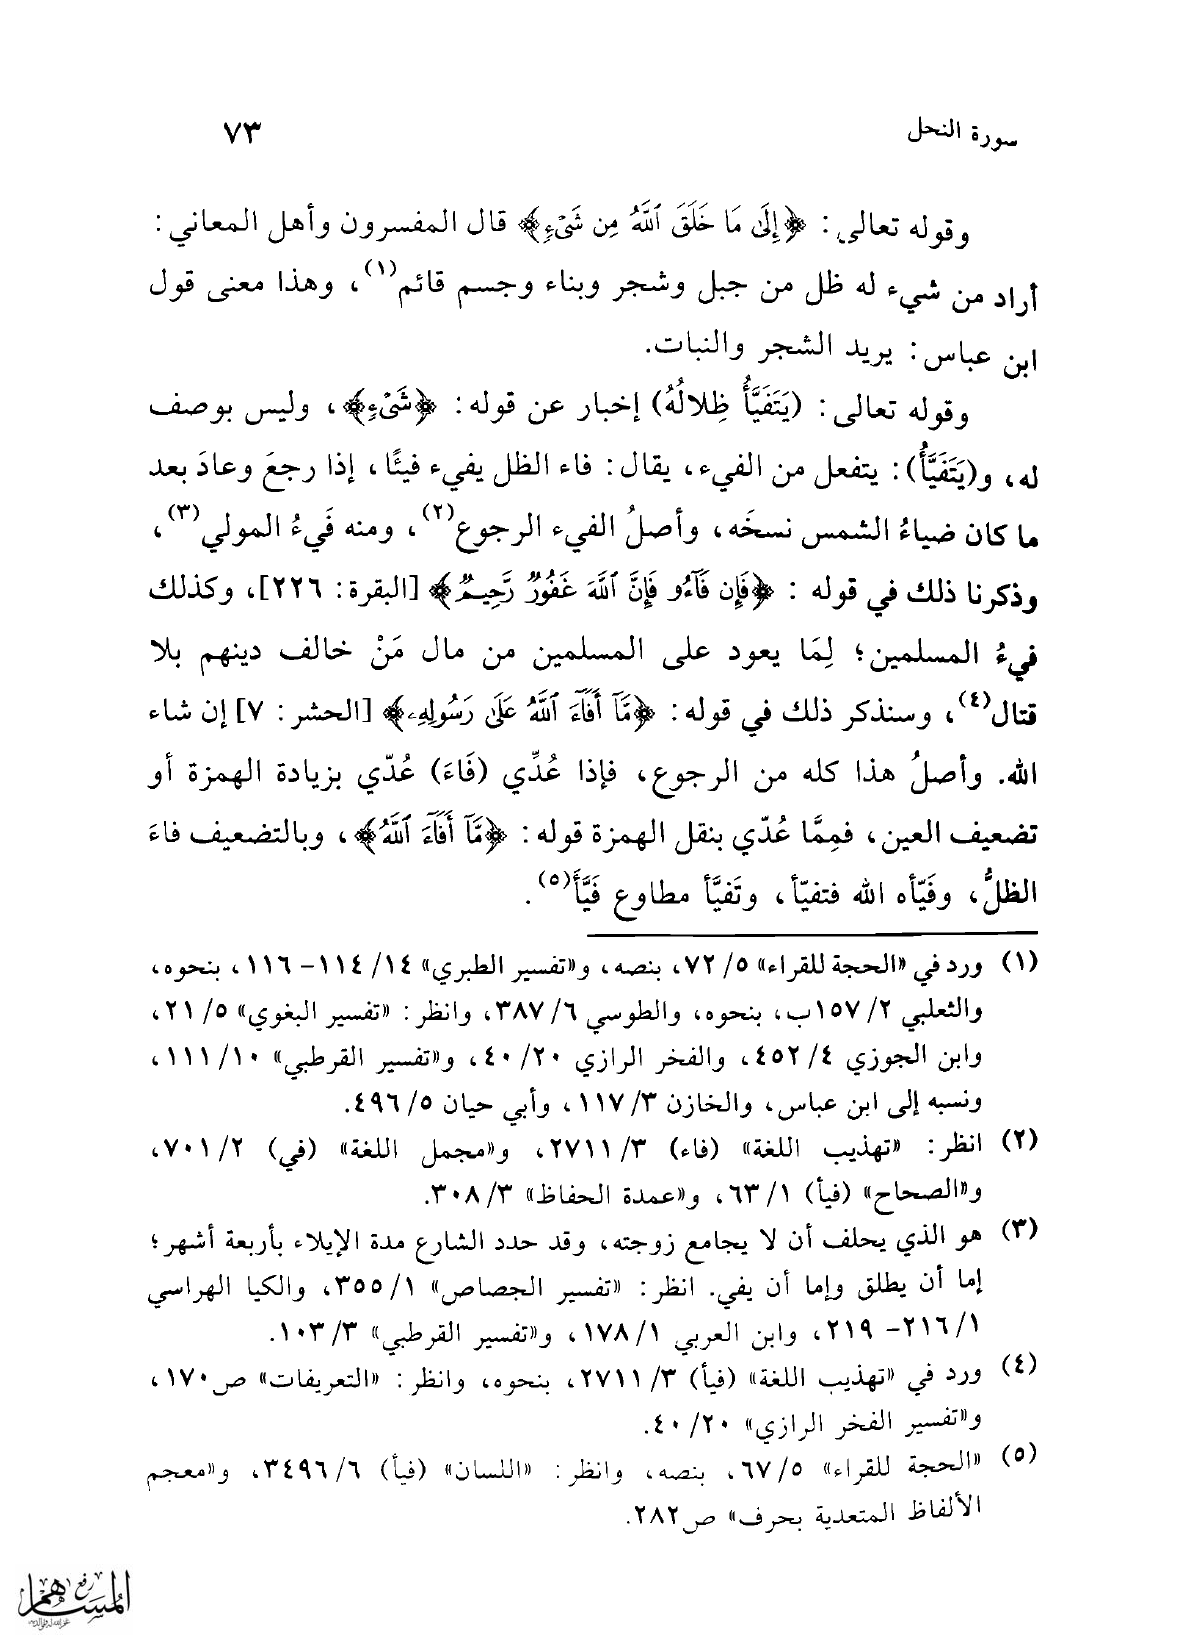 سورة النحل ٧٣
وقوله تعالى: ﴿إِلَىٰ مَا خَلَقَ ٱللَّهُ مِن شَىْءٍ﴾ قال المفسرون وأهل المعاني:
أراد من شيء له ظل من جبل وشجر وبناء وجسم قائم(١)، وهذا معنى قول
ابن عباس: يريد الشجر والنبات.
وقوله تعالى: (يَتَفَيَّأُ ظِلالُهُ) إخبار عن قوله: ﴿شَىْءٍ﴾، وليس بوصف
له، و(يَتَفَيَّأُ): يتفعل من الفيء، يقال: فاء الظل يفيء فيئًا، إذا رجعَ وعادَ بعد
ما كان ضياءُ الشمس نسخَه، وأصلُ الفيء الرجوع(٢)، ومنه فَيءُ المولي(٣)،
وذكرنا ذلك في قوله : ﴿فَإِن فَآءُو فَإِنَّ ٱللَّهَ غَفُورٌ رَّحِيمٌ﴾ [البقرة: ٢٢٦]، وكذلك
فيءُ المسلمين؛ لِمَا يعود على المسلمين من مال مَنْ خالف دينهم بلا
قتال(٤)، وسنذكر ذلك في قوله: ﴿مَّآ أَفَآءَ ٱللَّهُ عَلَىٰ رَسُولِهِۦ﴾ [الحشر: ٧] إن شاء
الله. وأصلُ هذا كله من الرجوع، فإذا عُدِّي (فَاءَ) عُدّي بزيادة الهمزة أو
تضعيف العين، فمِمَّا عُدّي بنقل الهمزة قوله: ﴿مَّآ أَفَآءَ ٱللَّهُ﴾، وبالتضعيف فاءَ
الظلُّ، وفَيّأه الله فتفيّأ، وتَفيَّأ مطاوع فَيَّأَ(٥).
(١) ورد في «الحجة للقراء» ٥/ ٧٢، بنصه، و«تفسير الطبري» ١٤/ ١١٤- ١١٦، بنحوه،
والثعلبي ٢/ ١٥٧ب، بنحوه، والطوسي ٦/ ٣٨٧، وانظر: «تفسير البغوي» ٥/ ٢١،
وابن الجوزي ٤/ ٤٥٢، والفخر الرازي ٢٠/ ٤٠، و«تفسير القرطبي» ١٠/ ١١١،
ونسبه إلى ابن عباس، والخازن ٣/ ١١٧، وأبي حيان ٥/ ٤٩٦.
(٢) انظر: «تهذيب اللغة» (فاء) ٣/ ٢٧١١، و«مجمل اللغة» (في) ٢/ ٧٠١،
و«الصحاح» (فيأ) ١/ ٦٣، و«عمدة الحفاظ» ٣/ ٣٠٨.
(٣) هو الذي يحلف أن لا يجامع زوجته، وقد حدد الشارع مدة الإيلاء بأربعة أشهر؛
إما أن يطلق وإما أن يفي. انظر: «تفسير الجصاص» ١/ ٣٥٥، والكيا الهراسي
١/ ٢١٦- ٢١٩، وابن العربي ١/ ١٧٨، و«تفسير القرطبي» ٣/ ١٠٣.
(٤) ورد في «تهذيب اللغة» (فيأ) ٣/ ٢٧١١، بنحوه، وانظر: «التعريفات» ص١٧٠،
و«تفسير الفخر الرازي» ٢٠/ ٤٠.
(٥) «الحجة للقراء» ٥/ ٦٧، بنصه، وانظر: «اللسان» (فيأ) ٦/ ٣٤٩٦، و«معجم
الألفاظ المتعدية بحرف» ص٢٨٢.
رفع
المساهم